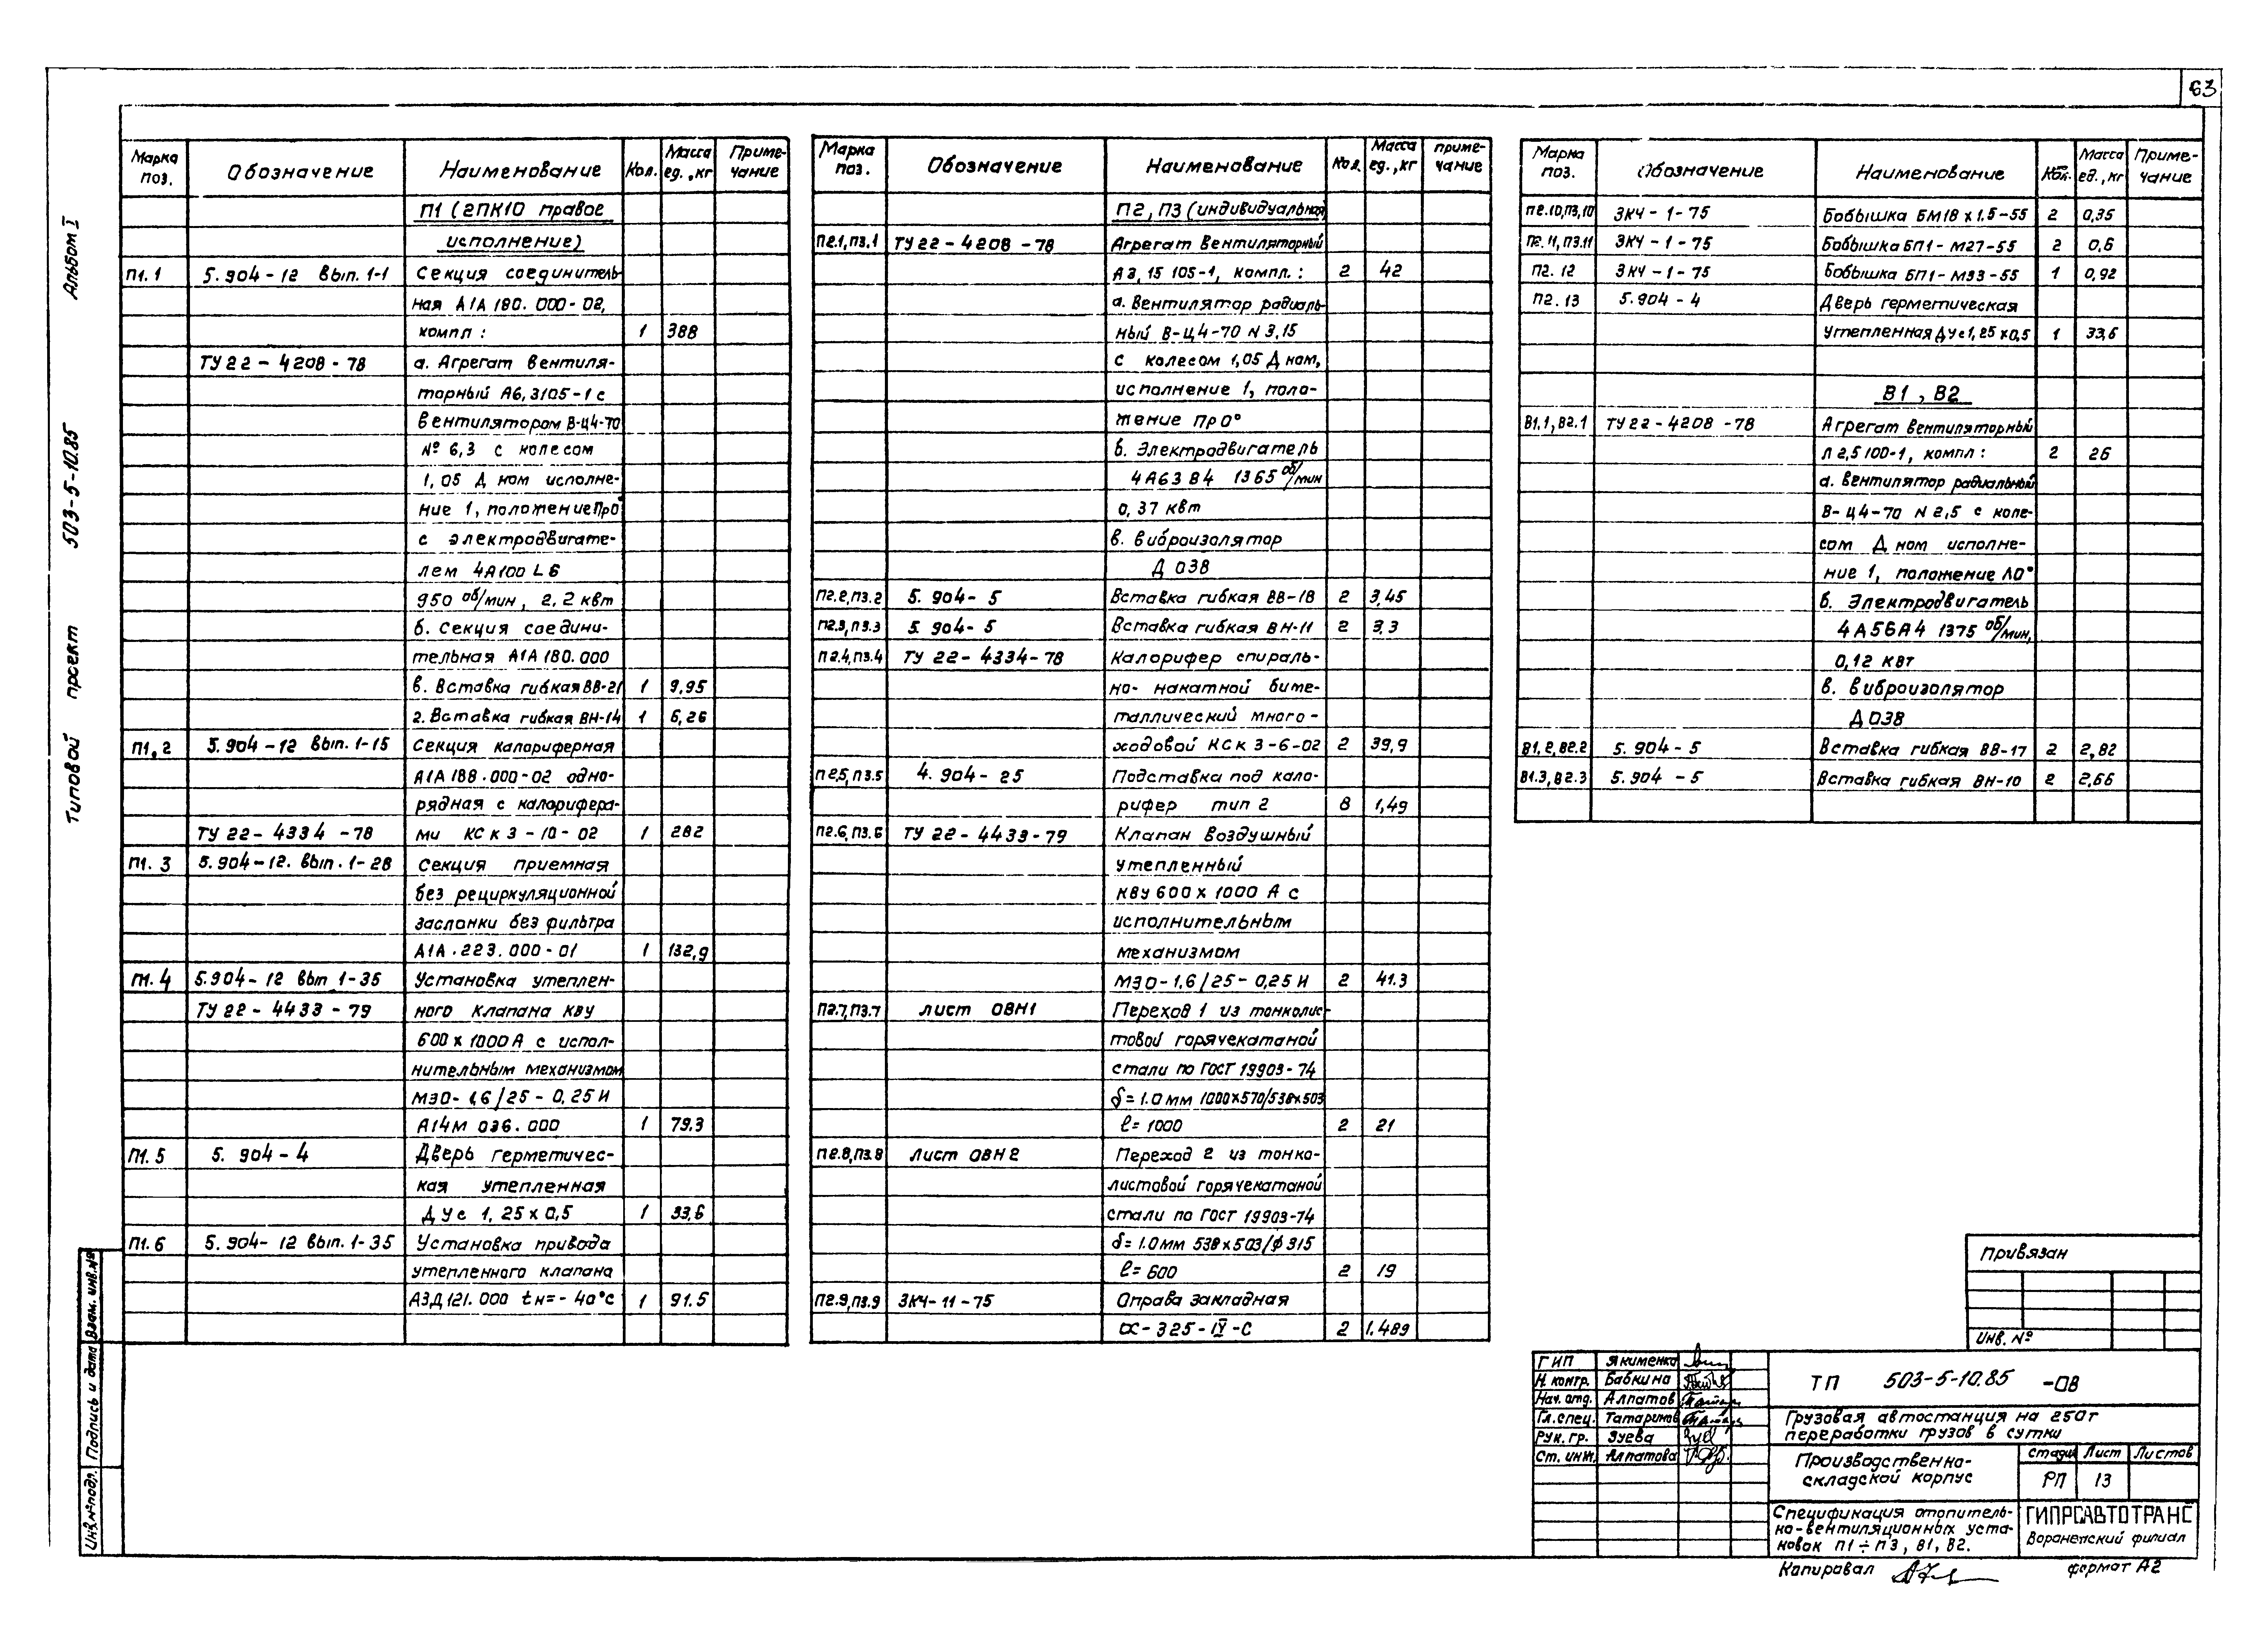 63
Альбом I
503-5-10.85
Типовой проект
Марка поз. Обозначение Наименование Кол. Масса ед.,кг Приме-чание
П1 (2ПК10 правое
исполнение)
П1.1 5.904-12 вып. 1-1 Секция соединитель-
ная А1А 180.000-02,
компл: 1 388
ТУ 22-4208-78 а. Агрегат вентиля-
торный А6,3105-1 с
вентилятором В-Ц4-70
№ 6,3 с колесом
1,05 Д ном исполне-
ние 1, положение Пр0°
с электродвигате-
лем 4А100L6
950 об/мин, 2.2 квт
б. Секция соедини-
тельная А1А 180.000
в. Вставка гибкая ВВ-21 1 9,95
г. Вставка гибкая ВН-14 1 6,26
П1,2 5.904-12 вып. 1-15 Секция калориферная
А1А 188.000-02 одно-
рядная с калорифера-
ТУ 22-4334-78 ми КСк 3-10-02 1 282
П1.3 5.904-12. вып. 1-28 Секция приемная
без рециркуляционной
заслонки без фильтра
А1А.223.000-01 1 132,9
П1.4 5.904-12 вып 1-35 Установка утеплен-
ТУ 22-4433-79 ного клапана КВУ
600х1000А с испол-
нительным механизмом
МЭО-1,6/25-0,25И
А14М 036.000 1 79.3
П1.5 5.904-4 Дверь герметичес-
кая утепленная
ДУс 1,25х0,5 1 33,6
П1.6 5.904-12 вып. 1-35 Установка привода
утепленного клапана
А3Д 121.000 tн=-40°С 1 91.5
Марка поз. Обозначение Наименование Кол. Масса ед.,кг приме-чание
П2, П3 (индивидуальная)
П2.1,П3.1 ТУ 22-4208-78 Агрегат вентиляторный
А3,15 105-1, компл.: 2 42
а. Вентилятор радиаль-
ный В-Ц4-70 N 3,15
с колесом 1,05 Д ном,
исполнение 1, поло-
жение Пр0°
б. Электродвигатель
4А63В4 1365 об/мин
0,37 квт
в. виброизолятор
Д 038
П2.2,П3.2 5.904-5 Вставка гибкая ВВ-18 2 3,45
П2.3,П3.3 5.904-5 Вставка гибкая ВН-11 2 3,3
П2.4,П3.4 ТУ 22-4334-78 Калорифер спираль-
но-накатной биме-
таллический много-
ходовой КСк 3-6-02 2 39,9
П2.5,П3.5 4.904-25 Подставка под кало-
рифер тип 2 8 1,49
П2.6,П3.6 ТУ 22-4433-79 Клапан воздушный
утепленный
КВУ 600х1000 А с
исполнительным
механизмом
МЭО-1,6/25-0,25И 2 41.3
П2.7,П3.7 лист ОВН1 Переход 1 из тонколис-
товой горячекатаной
стали по ГОСТ 19903-74
δ=1.0мм 1000х570/538х503
ℓ=1000 2 21
П2.8,П3.8 лист ОВН2 Переход 2 из тонко-
листовой горячекатаной
стали по ГОСТ 19903-74
δ=1.0мм 538х503/ф315
ℓ=600 2 19
П2.9,П3.9 ЗК4-11-75 Оправа закладная
α-325-IV-С 2 1,489
Марка поз. Обозначение Наименование Кол. Масса ед.,кг Приме-чание
П2.10,П3,10 ЗК4-1-75 Бобышка БМ18х1.5-55 2 0,35
П2.11,П3.11 ЗК4-1-75 Бобышка БП1-М27-55 2 0,6
П2.12 ЗК4-1-75 Бобышка БП1-М33-55 1 0,92
П2.13 5.904-4 Дверь герметическая
утепленная ДУс 1,25х0,5 1 33,6
В1, В2
В1.1,В2.1 ТУ 22-4208-78 Агрегат вентиляторный
Л2,5 100-1, компл: 2 26
а. Вентилятор радиальный
В-Ц4-70 N 2,5 с коле-
сом Д ном исполне-
ние 1, положение Л0°
б. Электродвигатель
4А56А4 1375 об/мин,
0,12 квт
в. виброизолятор
Д 038
В1.2,В2.2 5.904-5 Вставка гибкая ВВ-17 2 2,82
В1.3,В2.3 5.904-5 Вставка гибкая ВН-10 2 2,66
Привязан
Инв. №
ГИП Якименко
Н. контр. Бабкина
Нач. отд. Алпатов
Гл. спец. Татаринов
Рук. гр. Зуева
Ст. инж. Алпатова
ТП 503-5-10.85 -ОВ
Грузовая автостанция на 250т
переработки грузов в сутки
Производственно-
складской корпус
стадия Лист Листов
РП 13
Спецификация отопитель-
но-вентиляционных уста-
новок П1÷П3, В1, В2.
ГИПРОАВТОТРАНС
Воронежский филиал
Копировал
формат А2
Взам. инв.№
Подпись и дата
Инв.№подл.